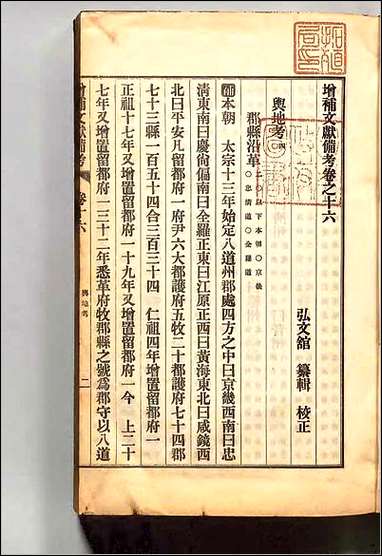 增補文獻備考卷之十六
弘文館 纂輯 校正
輿地考四
郡縣沿革二〇以下本朝〇京畿〇忠清道〇全羅道
補本朝 太宗十三年始定八道州郡處四方之中曰京畿西南曰忠
清東南曰慶尙偏南曰全羅正東曰江原正西曰黃海東北曰咸鏡西
北曰平安凡留都府一府尹六大都護府五牧二十都護府七十四郡
七十三縣一百五十四合三百三十四 仁祖四年增置留都府一
正祖十七年又增置留都府一十九年又增置留都府一今 上二十
七年又增置留都府一三十二年悉革府牧郡縣之號爲郡守以八道
增補文獻備考 卷十六 輿地考 一